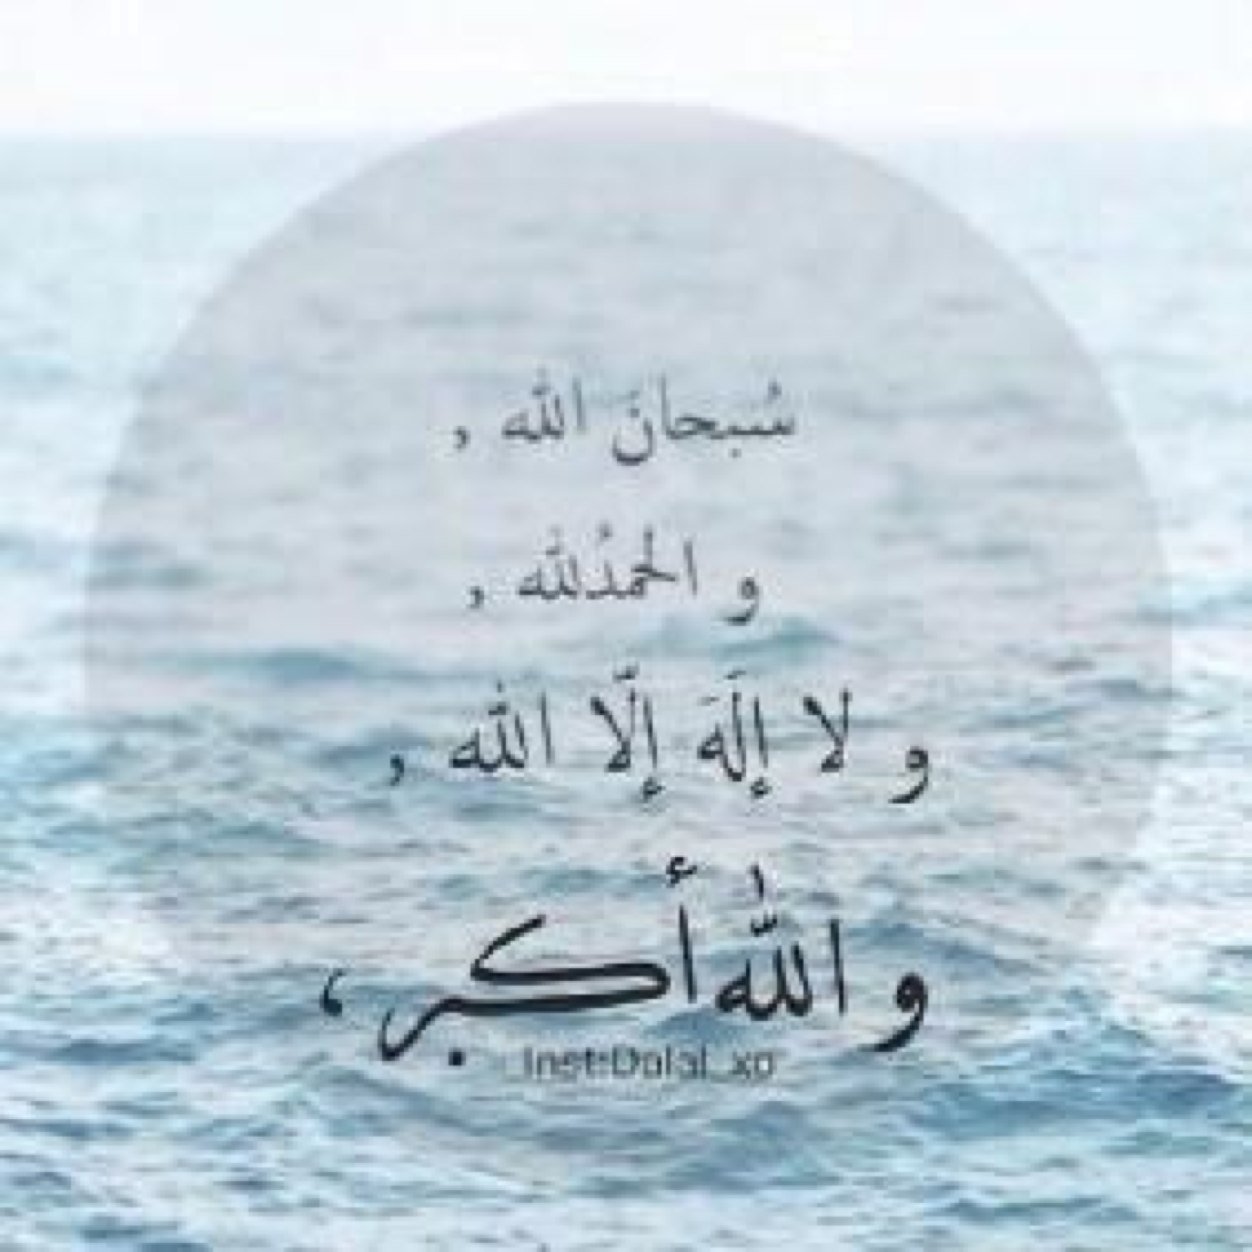 سُبحانَ الله ,
و الحمدُلله ,
و لا إلَهَ إلّا الله ,
و اللّٰه أكبر ،
Inst:Dalal_xo